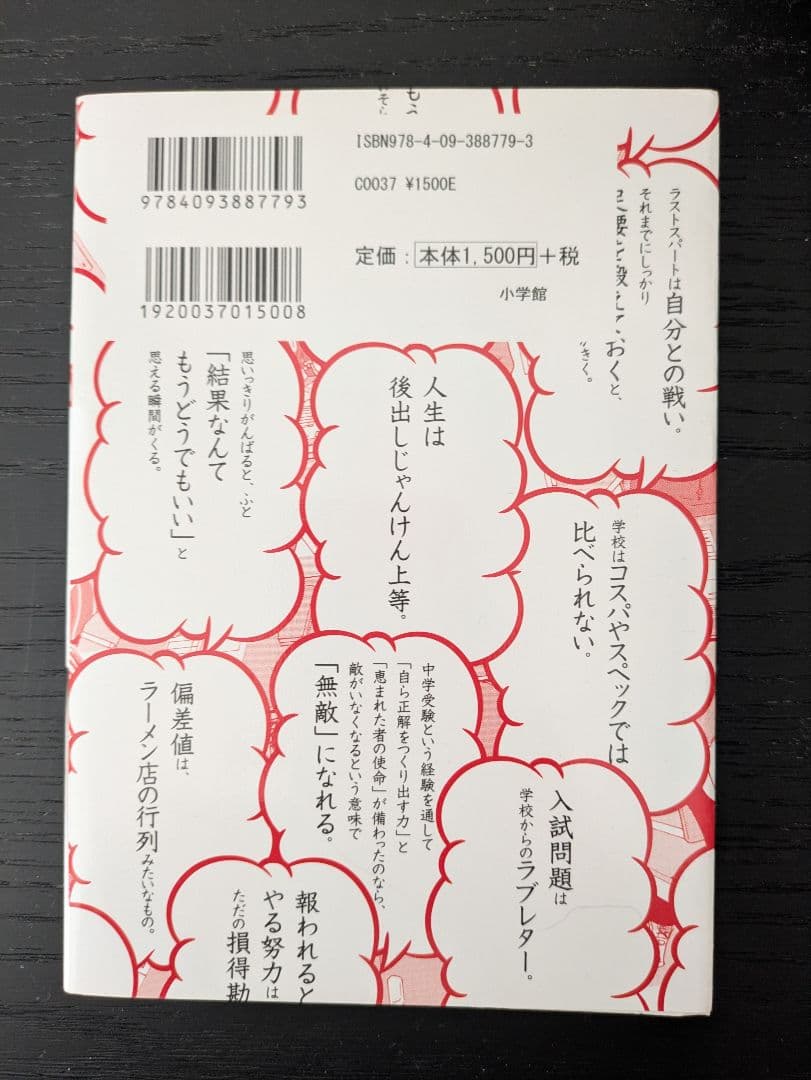 もう
ISBN978-4-09-388779-3
9784093887793
C0037 ¥1500E
1920037015008
定価：本体1,500円＋税
小学館
ラストスパートは自分との戦い。
それまでにしっかり
足腰を鍛えておくと、
きく。
人生は
後出しじゃんけん上等。
思いっきりがんばると、ふと
「結果なんて
もうどうでもいい」と
思える瞬間がくる。
学校はコスパやスペックでは
比べられない。
中学受験という経験を通して
「自ら正解をつくり出す力」と
「恵まれた者の使命」が備わったのなら、
敵がいなくなるという意味で
「無敵」になれる。
偏差値は、
ラーメン店の行列みたいなもの。
入試問題は
学校からのラブレター。
報われると
やる努力は
ただの損得勘